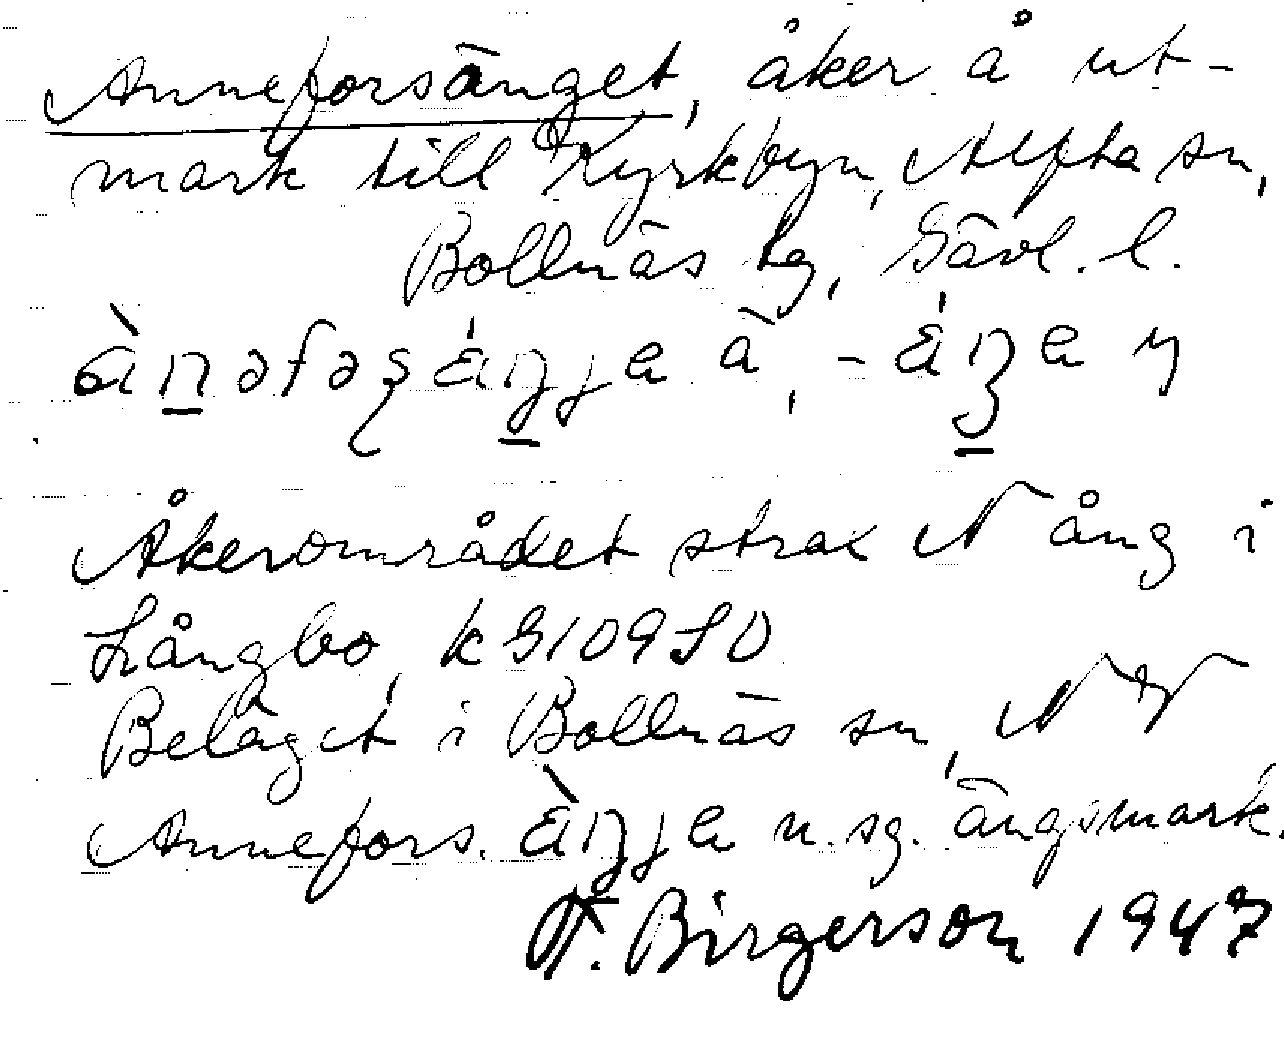 Anneforsänget, åker å ut-
mark till Kyrkbyn, Alfta sn,
Bollnäs tg, Gävl. l.
Åkerområdet strax N äng i
Långbo, k G109SO
Beläget i Bollnäs sn, NV
Annefors. n. sg. ängsmark.
F. Birgerson 1947